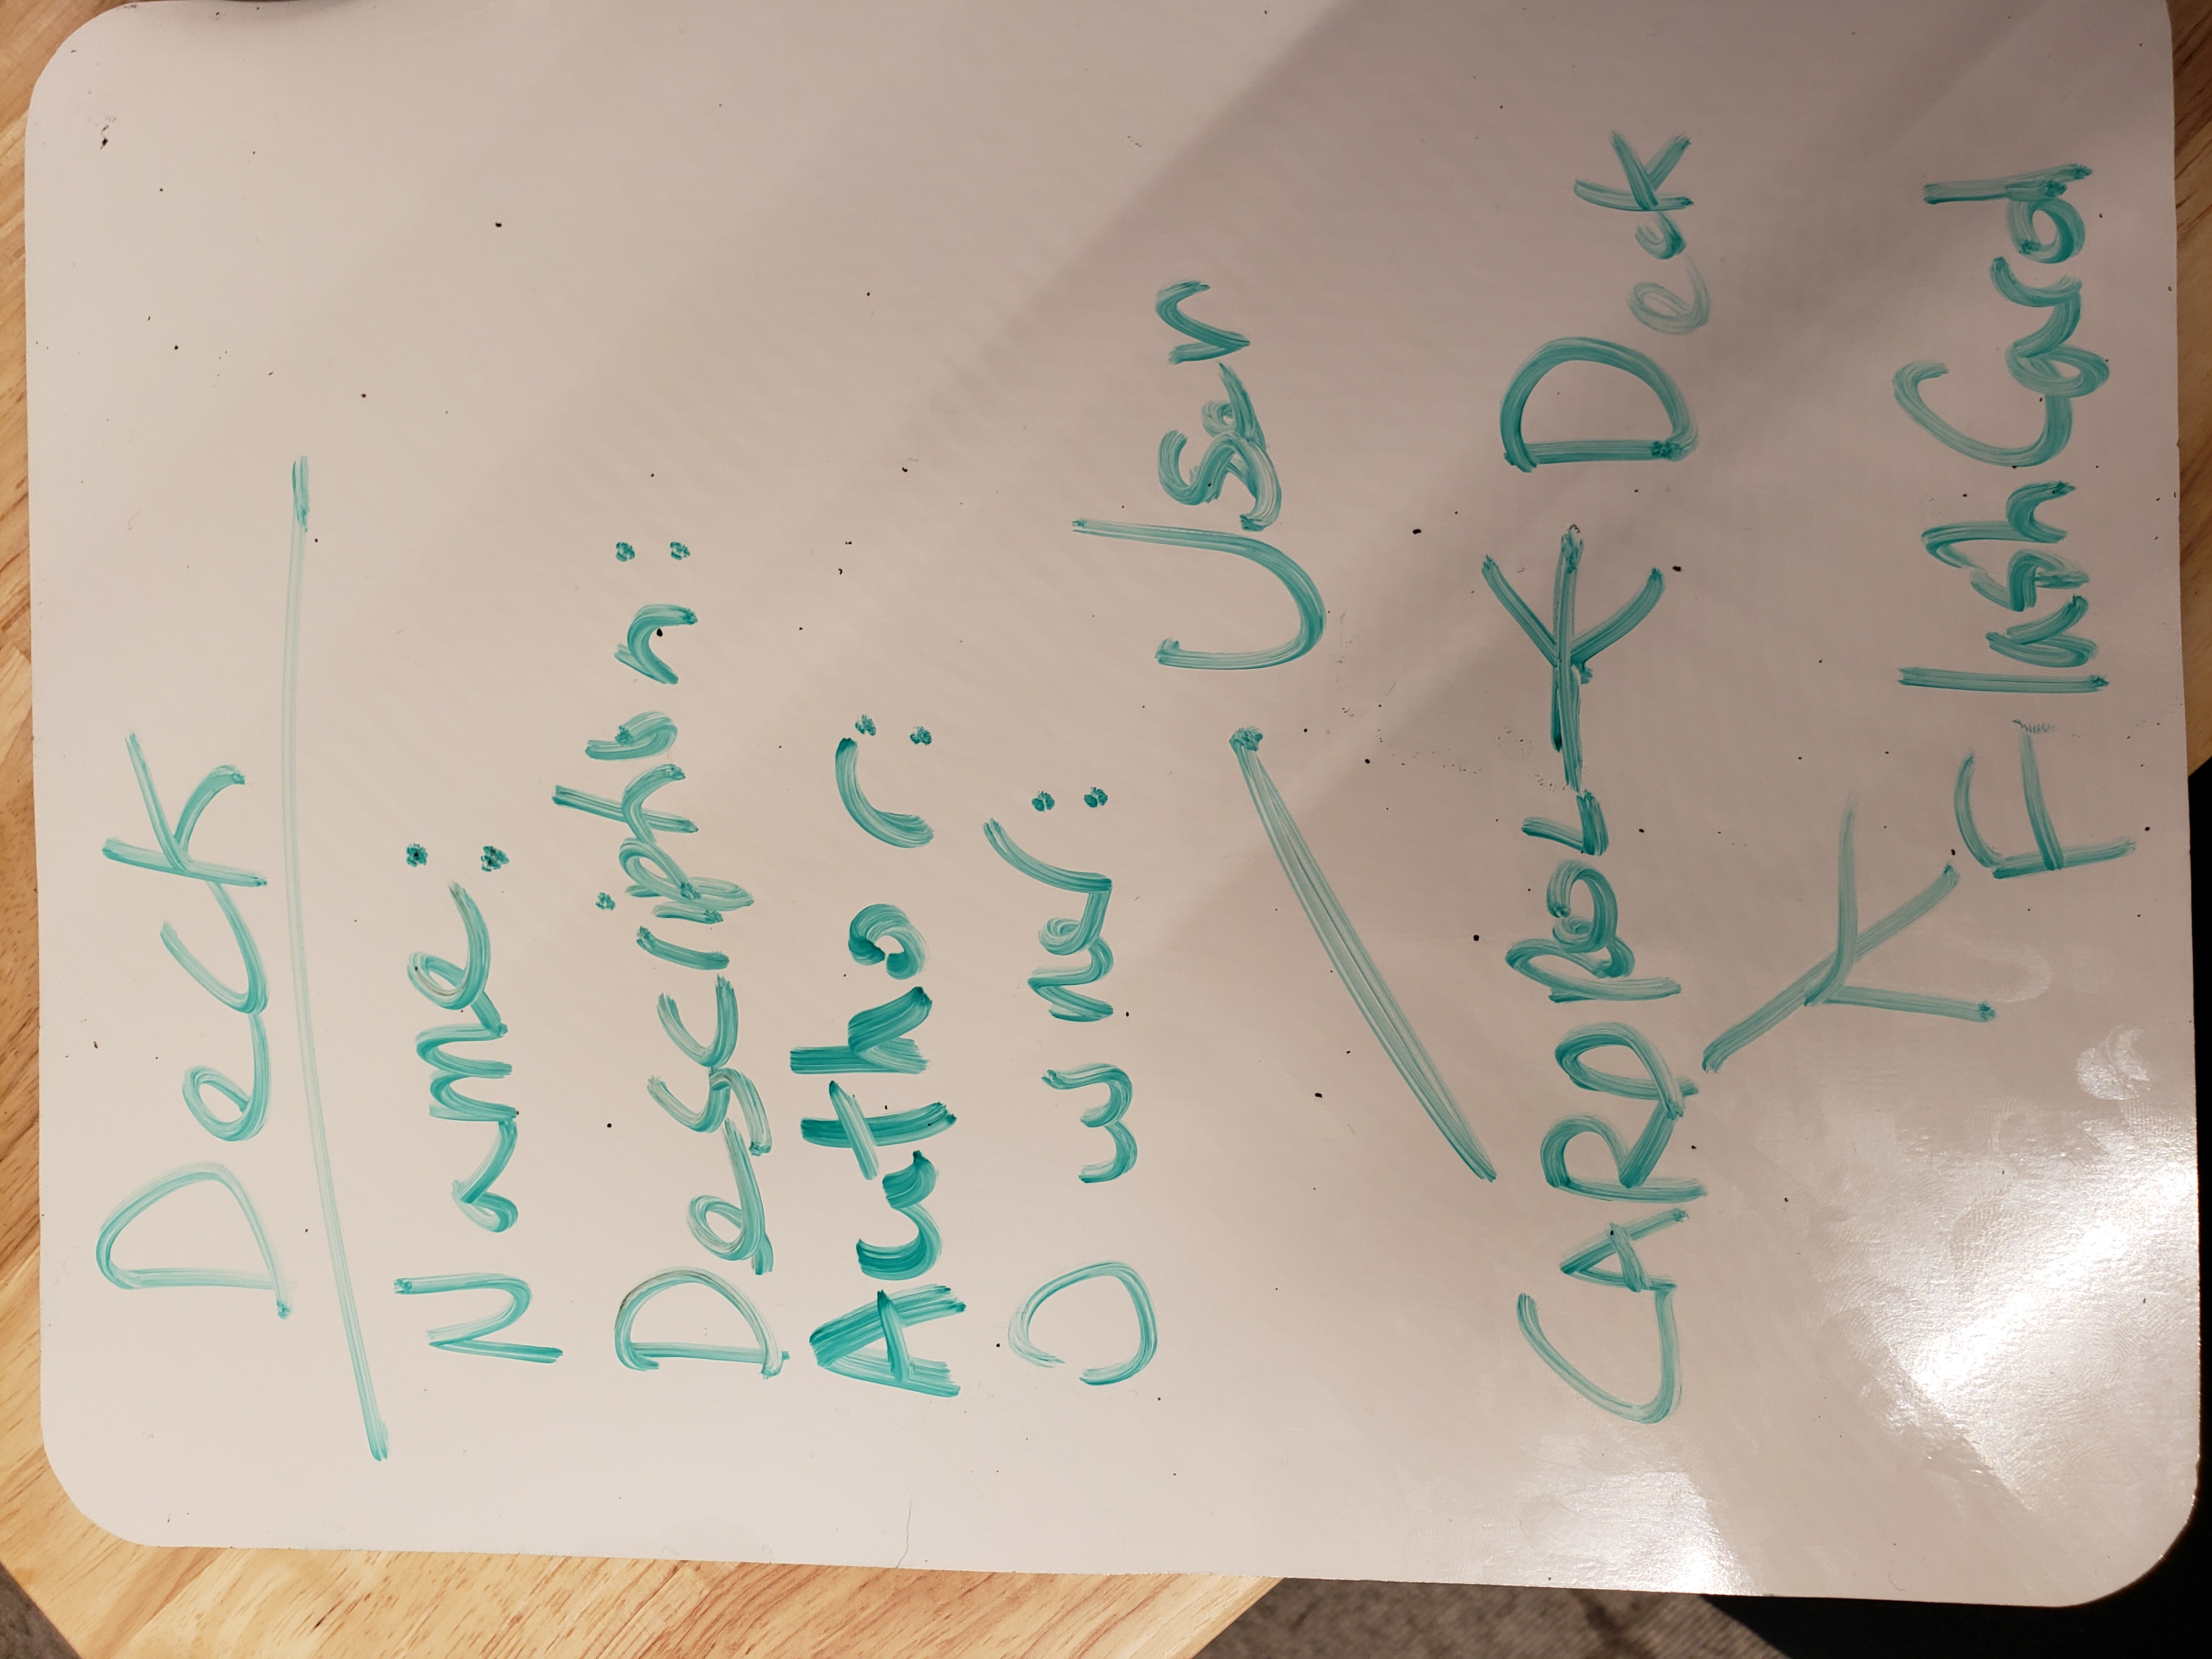 Deck
Name:
Description:
Author:
Owner:
User
CARDPOOL
Deck
FlashCard